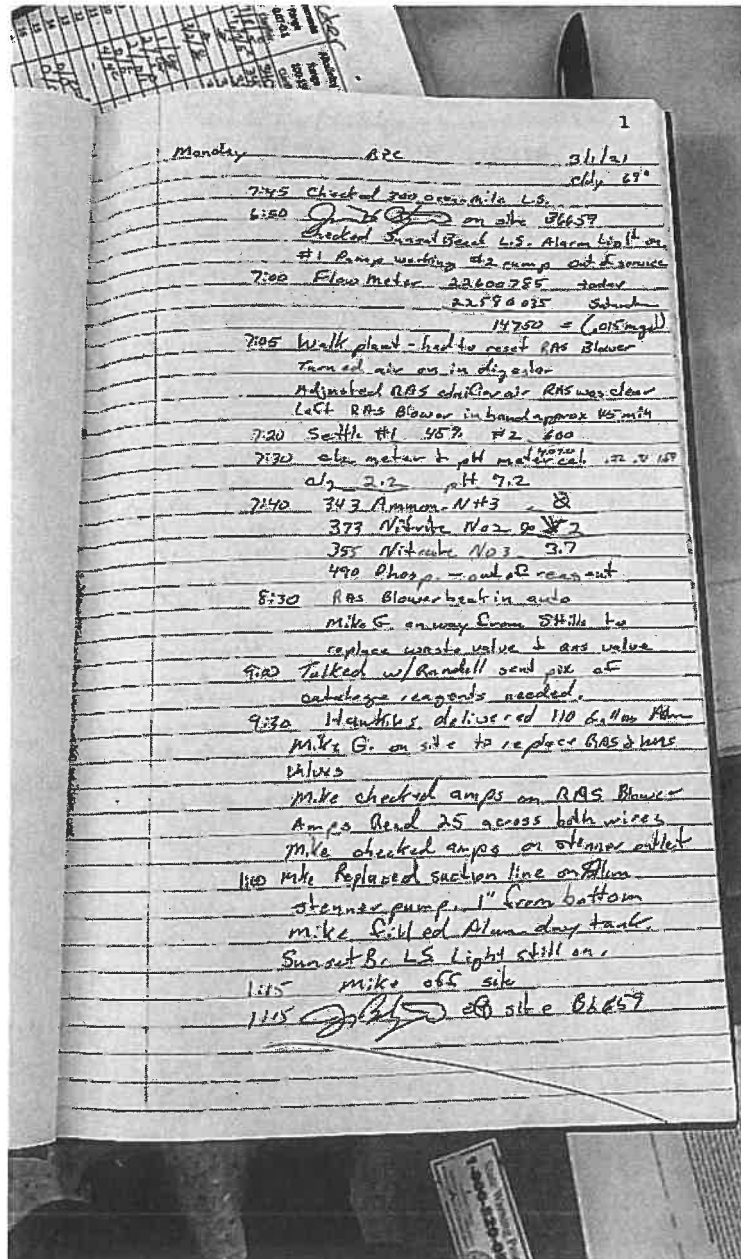 1
Monday 3/1/21
cldy 69°
7:45 Checked 300 ocean mile L.S.
6:50 on site B6659
Checked Sunset Beach L.S. Alarm Light on
#1 Pump working #2 pump out of service
7:00 Flow Meter 22600785 today
14750 = (.015 mgd)
7:05 Walk plant - had to reset RAS Blower
Turned air on in digester
Adjusted RAS air RAS was clear
Left RAS Blower in hand approx 45 min
7:20 Settle #1 45% #2 600
7:30 meter & pH meter cal.
2.2 pH 7.2
7:40 343 Ammon. NH3
373 Nitrite NO2 2
355 Nitrate NO3 3.7
490 Phosp. - out of reagent
8:30 RAS Blower back in auto
Mike G. on way from to
replace waste valve & RAS valve
9:00 Talked w/ Randell sent pix of
reagents needed.
9:30 Hawkins delivered 110 Gallon Alum
Mike G. on site to replace RAS &
valves
Mike checked amps on RAS Blower
Amps Read 25 across both wires
Mike checked amps on stenner outlet
Mike Replaced suction line on Alum
stenner pump. 1" from bottom
mike filled Alum day tank.
Sunset B. LS Light still on.
1:15 Mike off site
1:15 off site B6659